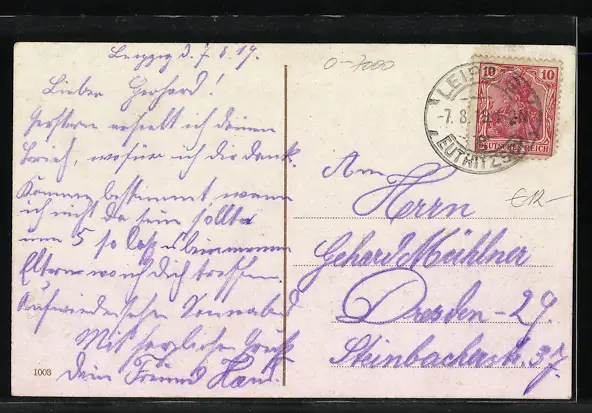 Leipzig d. 7.8.19.
Lieber Gerhard!
Gestern erhielt ich deinen
Brief, wofür ich dir danke.
Komme bestimmt wenn
ich nicht da sein sollte
um 5 so
Eltern dich treffen.
Aufwiedersehen Sonnabend
Mit herzlichen Gruß
dein Freund Hans.
1003
0-7000
LEIPZIG
-7.8.
EUTRITZSCH
10 10
DEUTSCHES REICH
€12-
An
Herrn
Gehard Mühlner
Dresden-29.
Steinbacherstr. 37.